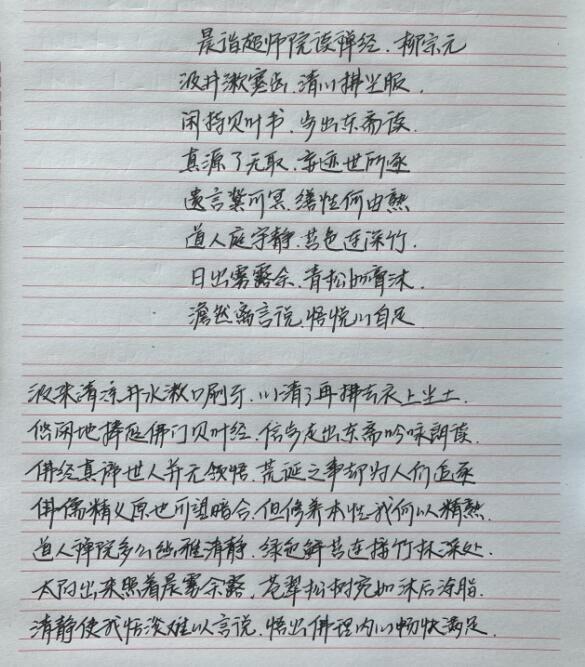 晨诣超师院读禅经.柳宗元
汲井漱寒齿.清心拂尘服.
闲持贝叶书.步出东斋读.
真源了无取.妄迹世所逐
遗言冀可冥.缮性何由熟
道人庭宇静.苔色连深竹.
日出雾露余.青松如膏沐.
澹然离言说.悟悦心自足.
汲来清凉井水漱口刷牙.心清了再拂去衣上尘土.
悠闲地捧起佛门贝叶经.信步走出东斋吟咏朗读.
佛经真谛世人并无领悟.荒诞之事却为人们追逐
佛儒精义原也可望暗合.但修养本性我何以精熟.
道人禅院多么幽雅清静.绿色鲜苔连接竹林深处.
太阳出来照着晨雾余露.苍翠松树宛如沐后涂脂.
清静使我恬淡难以言说.悟出佛理内心畅快满足.